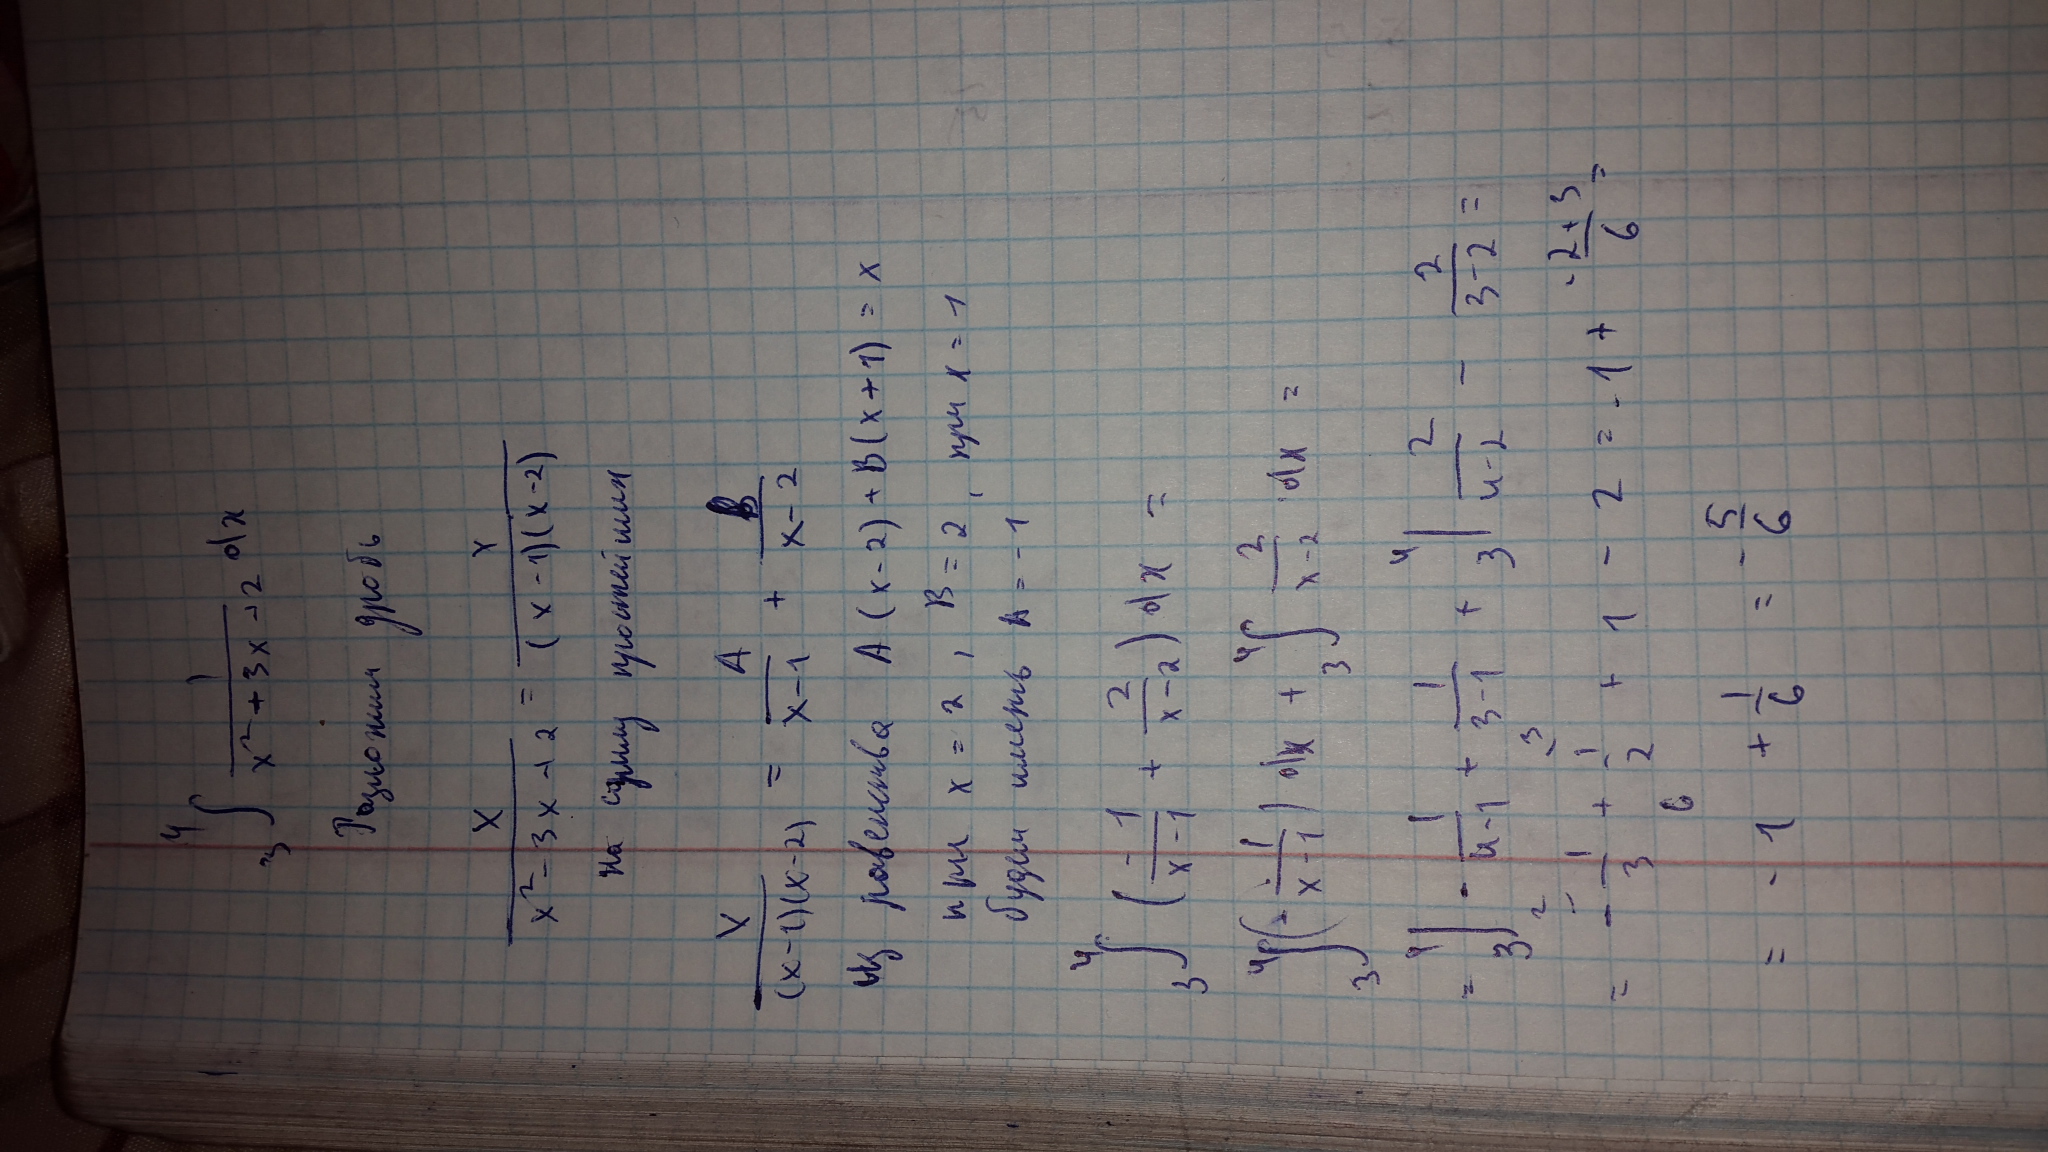 4 ∫ 3 1/(x² + 3x + 2) dx
Разложим дробь
x/(x² - 3x + 2) = x/((x - 1)(x - 2))
на сумму простейших
x/((x - 1)(x - 2)) = A/(x - 1) + B/(x - 2)
Из равенства A (x - 2) + B (x + 1) = x
при x = 2, B = 2, при x = 1
будем иметь A = -1
4 ∫ 3 (-1/(x - 1) + 2/(x - 2)) dx =
4 ∫ 3 (-1/(x - 1)) dx + 4 ∫ 3 2/(x - 2) dx =
= 4 | 3 - 1/(4 - 1) + 1/(3 - 1) + 4 | 3 2/(4 - 2) - 2/(3 - 2) =
= - 1/3 + 1/2 + 1 - 2 = - 1 + (-2 + 3)/6 =
= - 1 + 1/6 = - 5/6